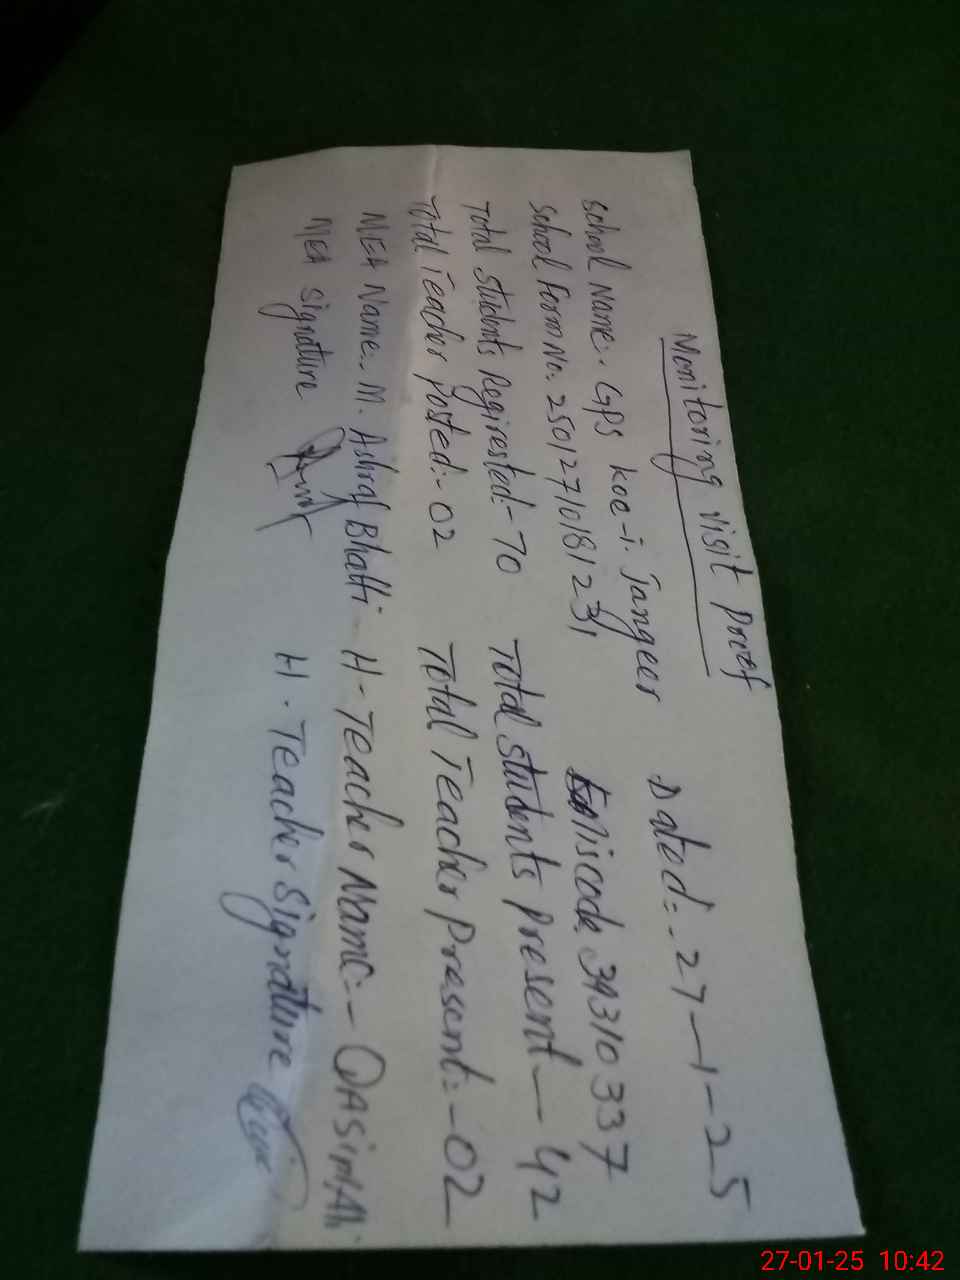 Monitoring visit Proof
School Name:- GPS Koe-i-Jangeer Dated:- 27-1-25
School Form No. 25012710181231 Emiscode 34310337
Total Students Regirested:- 70 Total Students Present - 42
Total Teacher Posted:- 02 Total Teacher Present:- 02
MEA Name:- M. Ashraf Bhatti H-Teacher Name:- QASim Ali
MEA Signature H. Teacher Signature
27-01-25 10:42